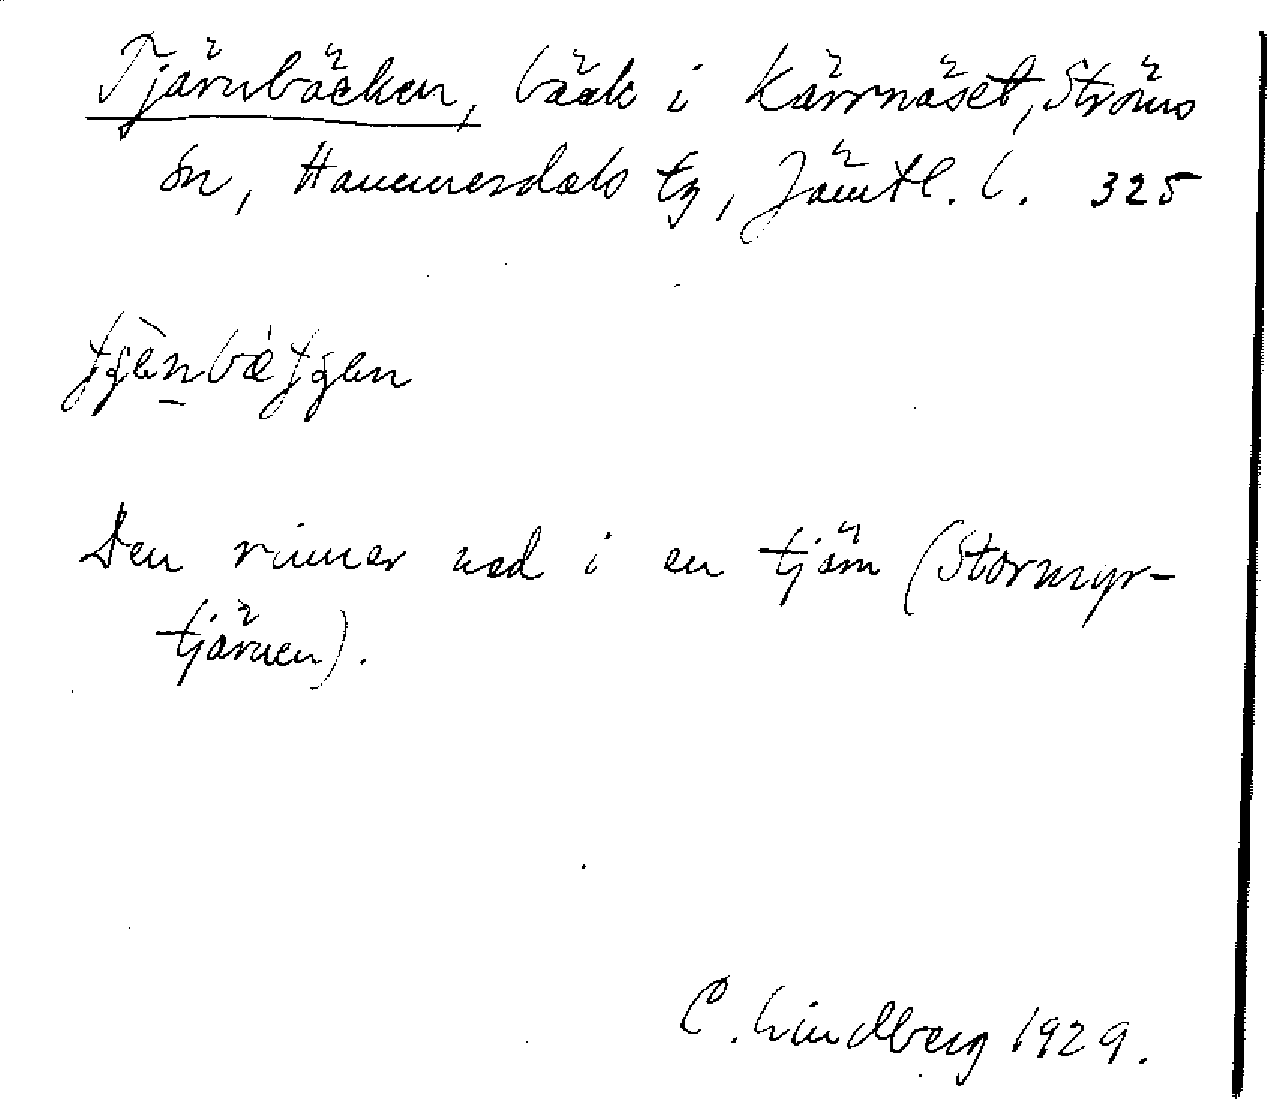 Tjärnbäcken, bäck i Kärrnäset, Ströms
sn, Hammerdals tg, Jämtl. l. 325
Den rinner ned i en tjärn (Stormyr-
tjärnen).
C. Lindberg 1929.